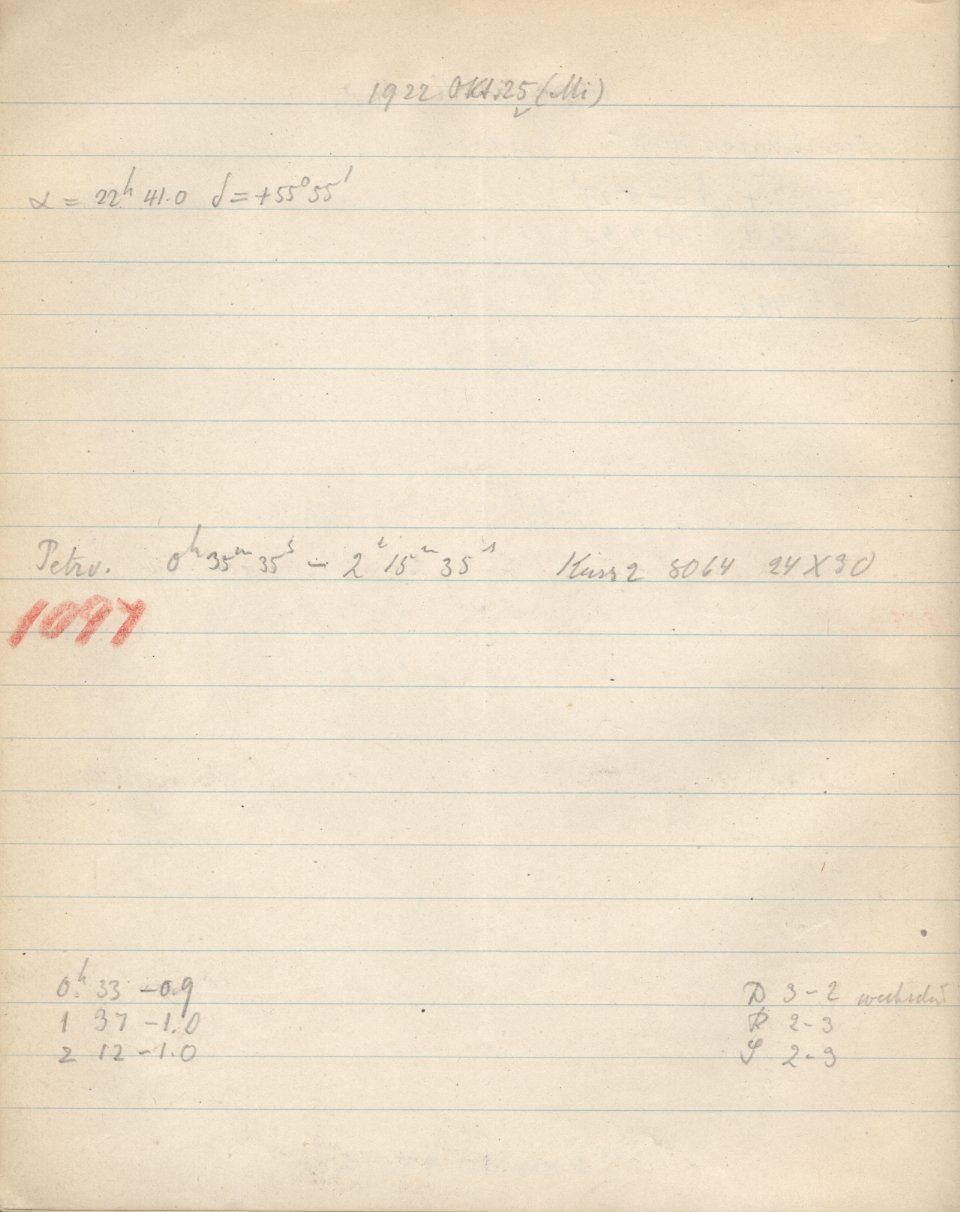 1922 Okt. 25 (Mi)
α = 22h 41.0 δ = +55° 55'
Petzv. 0h 35m 35s — 2h 15m 35s 8064 24X30
1097
0h 33 –0.9
1 37 –1.0
2 12 –1.0
D 3–2 wechselnd
R 2–3
S 2–3